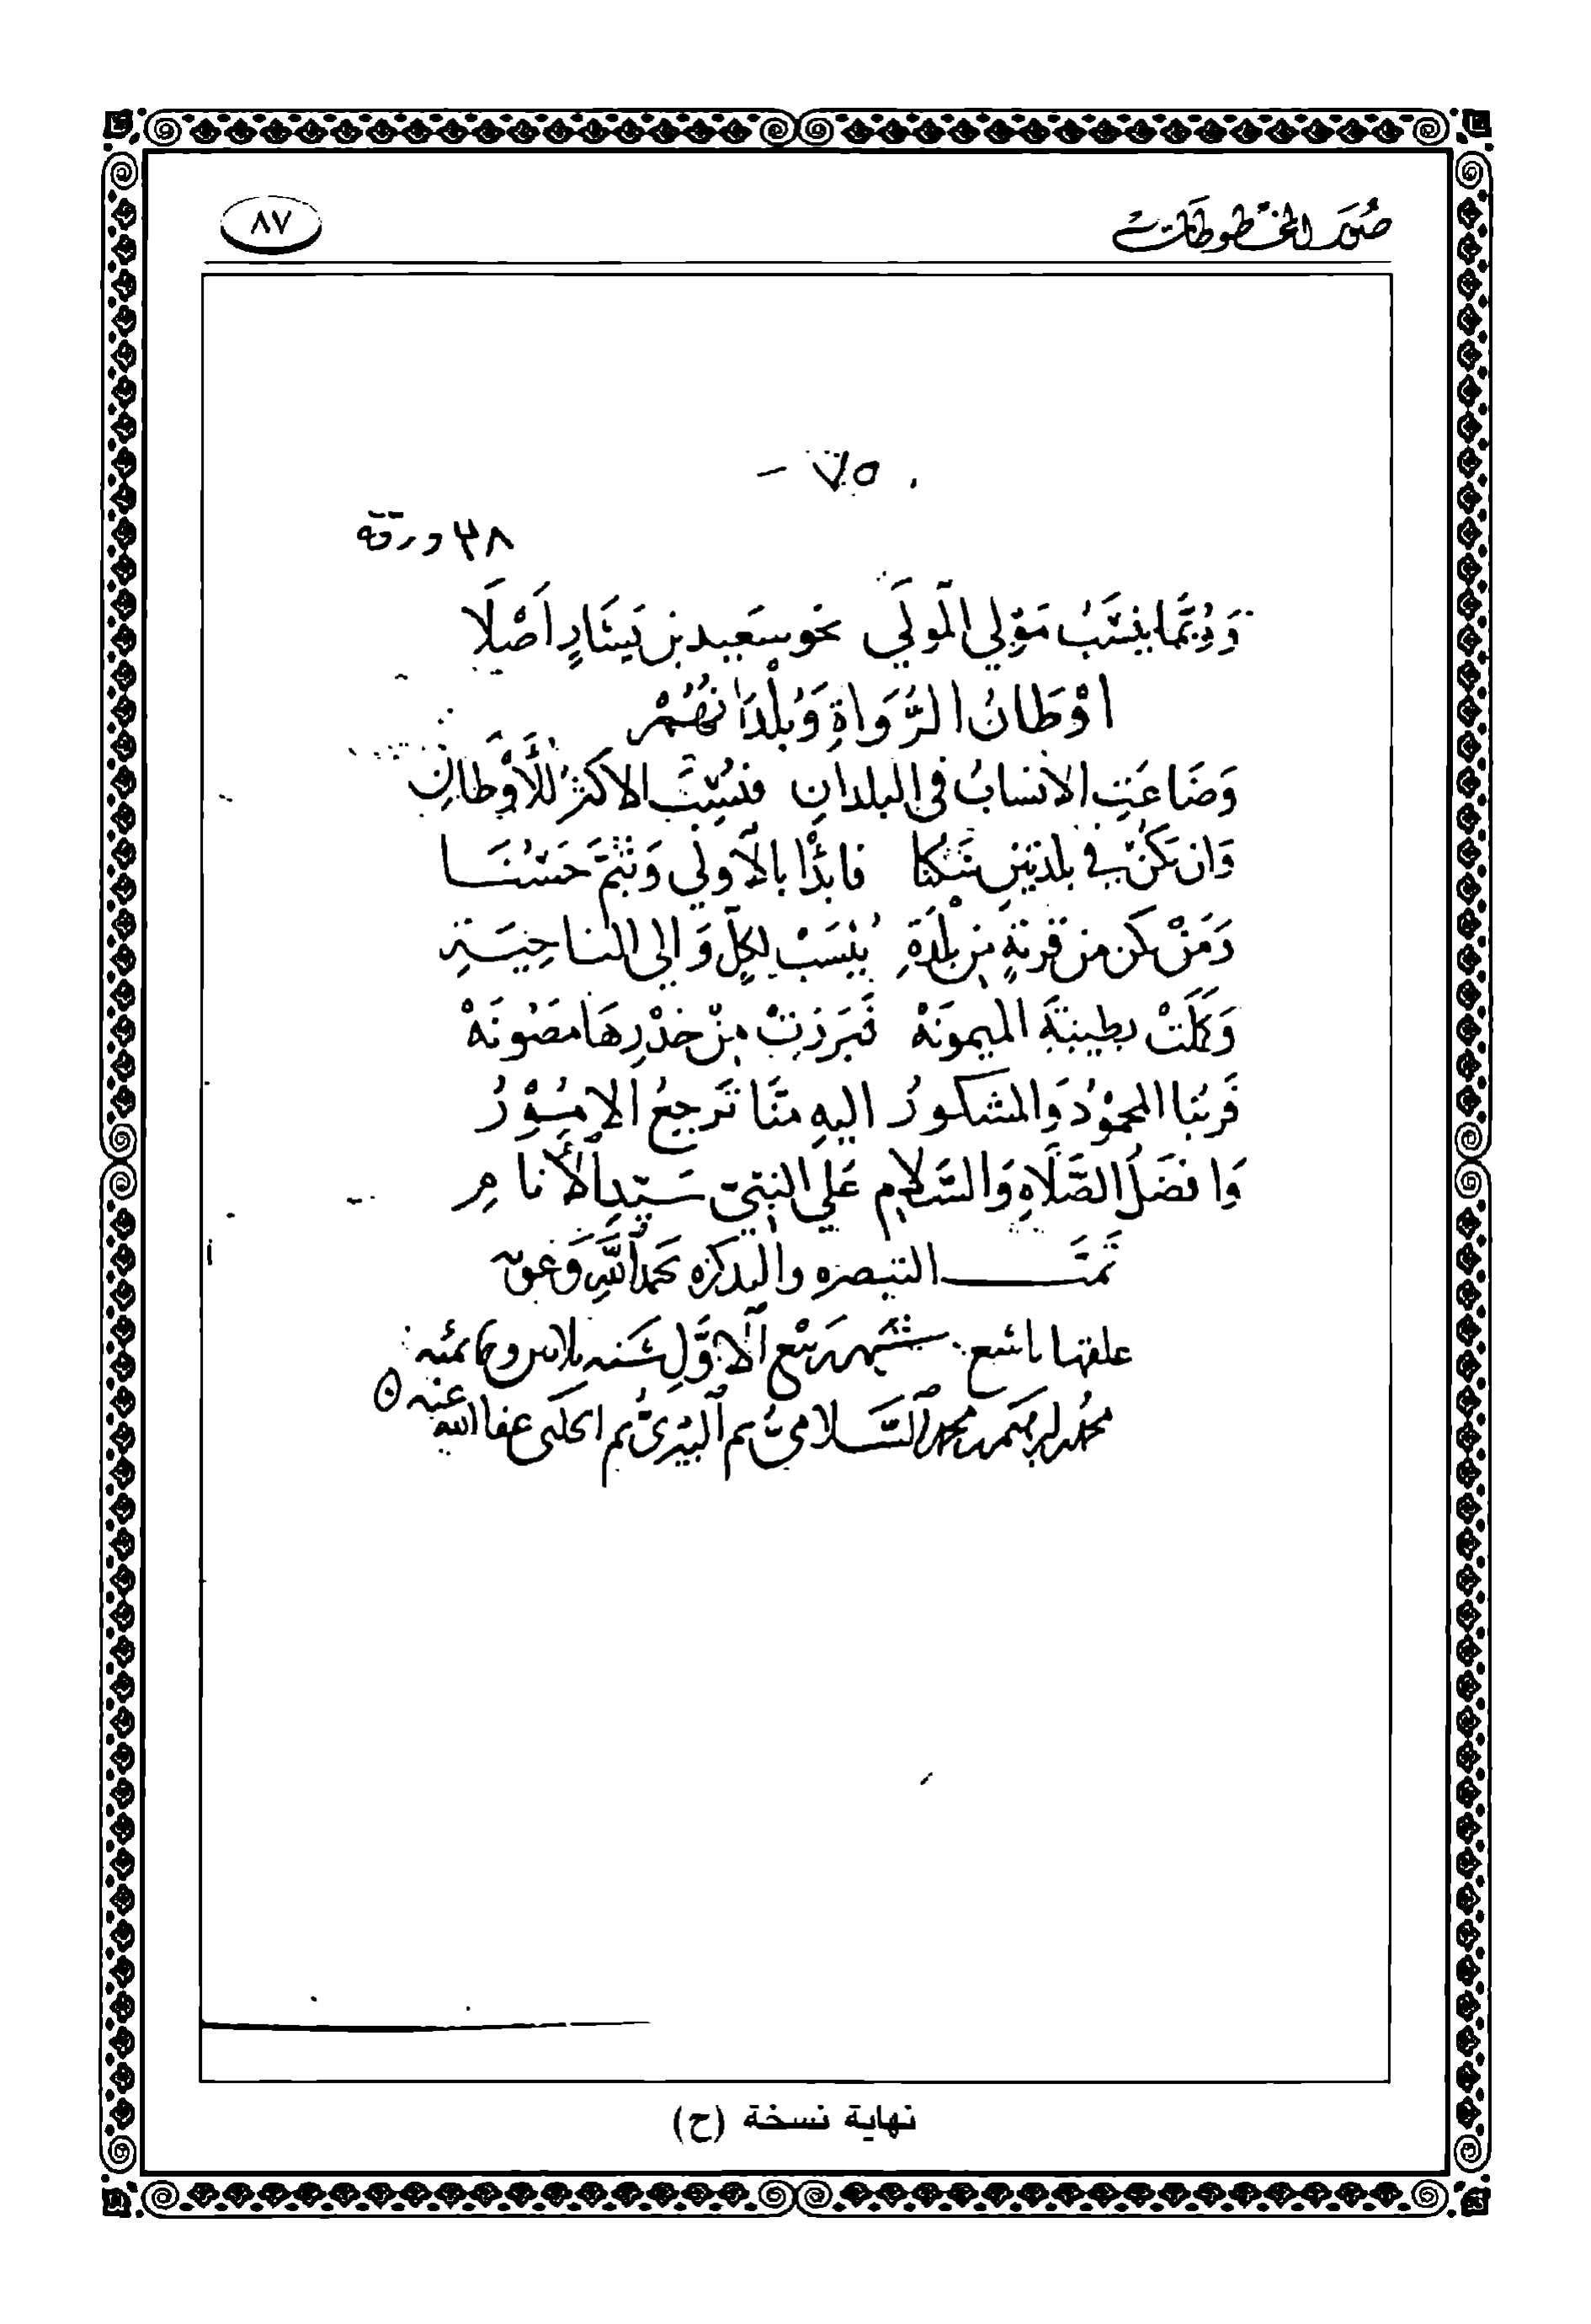 صور المخطوطات
٨٧
٧٥ -
٣٨ ورقة
وَرُبَّمَا ينسَبُ مَوْلي المَولَي نحو سعيد بن يَسَارٍ اَصْلَا
اوْطَانُ الرُّوَاةِ وَبُلْدَانُهُمْ
وَضَاعَتِ الانسابُ في البلدانِ فنسُبَ الاكثرُ للأَوْطانِ
وَان يكنْ في بلدتينِ سَكنا فابدَا بالاَولي وَبثمَّ حَسُنَا
وَمَنْ يكن من قريةٍ من بلْدَةِ يُنسَبْ لِكلٍّ وَالى الناحِيَةِ
وَكَمَلَتْ بطيبَةَ الميمونَهْ فَبَرَزَتْ مِنْ خِدْرِهَا مَصُونَهْ
فَربُنَا المحمُوْدُ وَالمشكورُ اليهِ مِنَّا تَرجِعُ الامُوْرُ
وَافضَلُ الصَّلَاةِ وَالسَّلامِ عَلي النبيّ سَيّدِ الأَنامِ
تمتَ التبصره والتدكره بحمد اللهِ وَعونه
علقها تاسع شهر ربيع الاَوَّلِ سَنه ثلاثين وثمانمئه
محمد بن محمد السَّلاميُّ ثم البيْرىُّ ثم الحلبى عفا الله عنه
نهاية نسخة (ح)